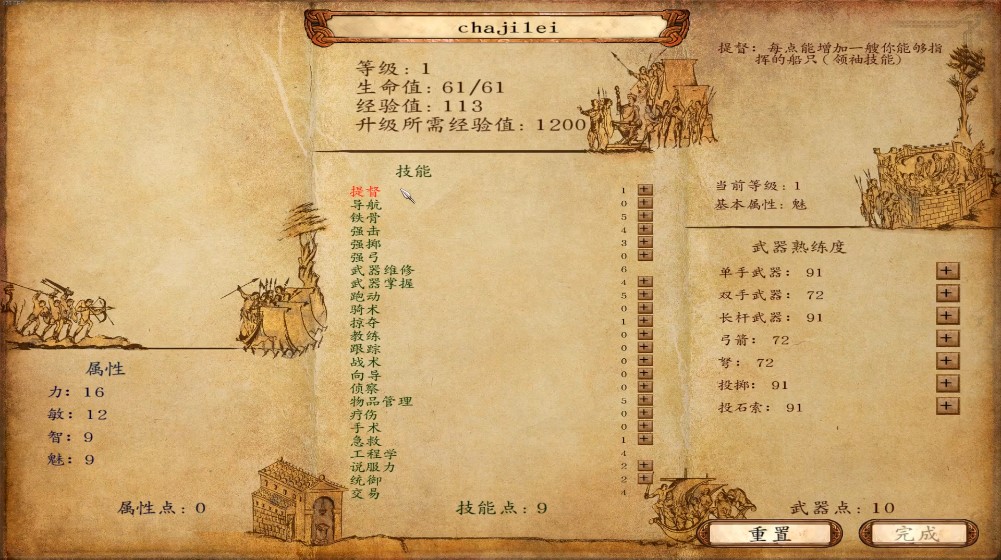 chajilei
提督：每点能增加一艘你能够指
挥的船只(领袖技能)
等级：1
生命值：61/61
经验值：113
升级所需经验值：1200
当前等级：1
基本属性：魅
技能
提督 1 +
导航 0 +
铁骨 5 +
强击 4 +
强掷 3 +
强弓 0 +
武器维修 6
武器掌握 4 +
跑动 5 +
骑术 0 +
掠夺 1 +
教练 0 +
跟踪 0 +
战术 0 +
向导 0 +
侦察 0 +
物品管理 5 +
疗伤 0 +
手术 0 +
急救 1 +
工程学 4
说服力 2 +
统御 2 +
交易 4
武器熟练度
单手武器：91 +
双手武器：72 +
长杆武器：91 +
弓箭：72 +
弩：72 +
投掷：91 +
投石索：91 +
属性
力：16
敏：12
智：9
魅：9
属性点：0
技能点：9
武器点：10
重置
完成